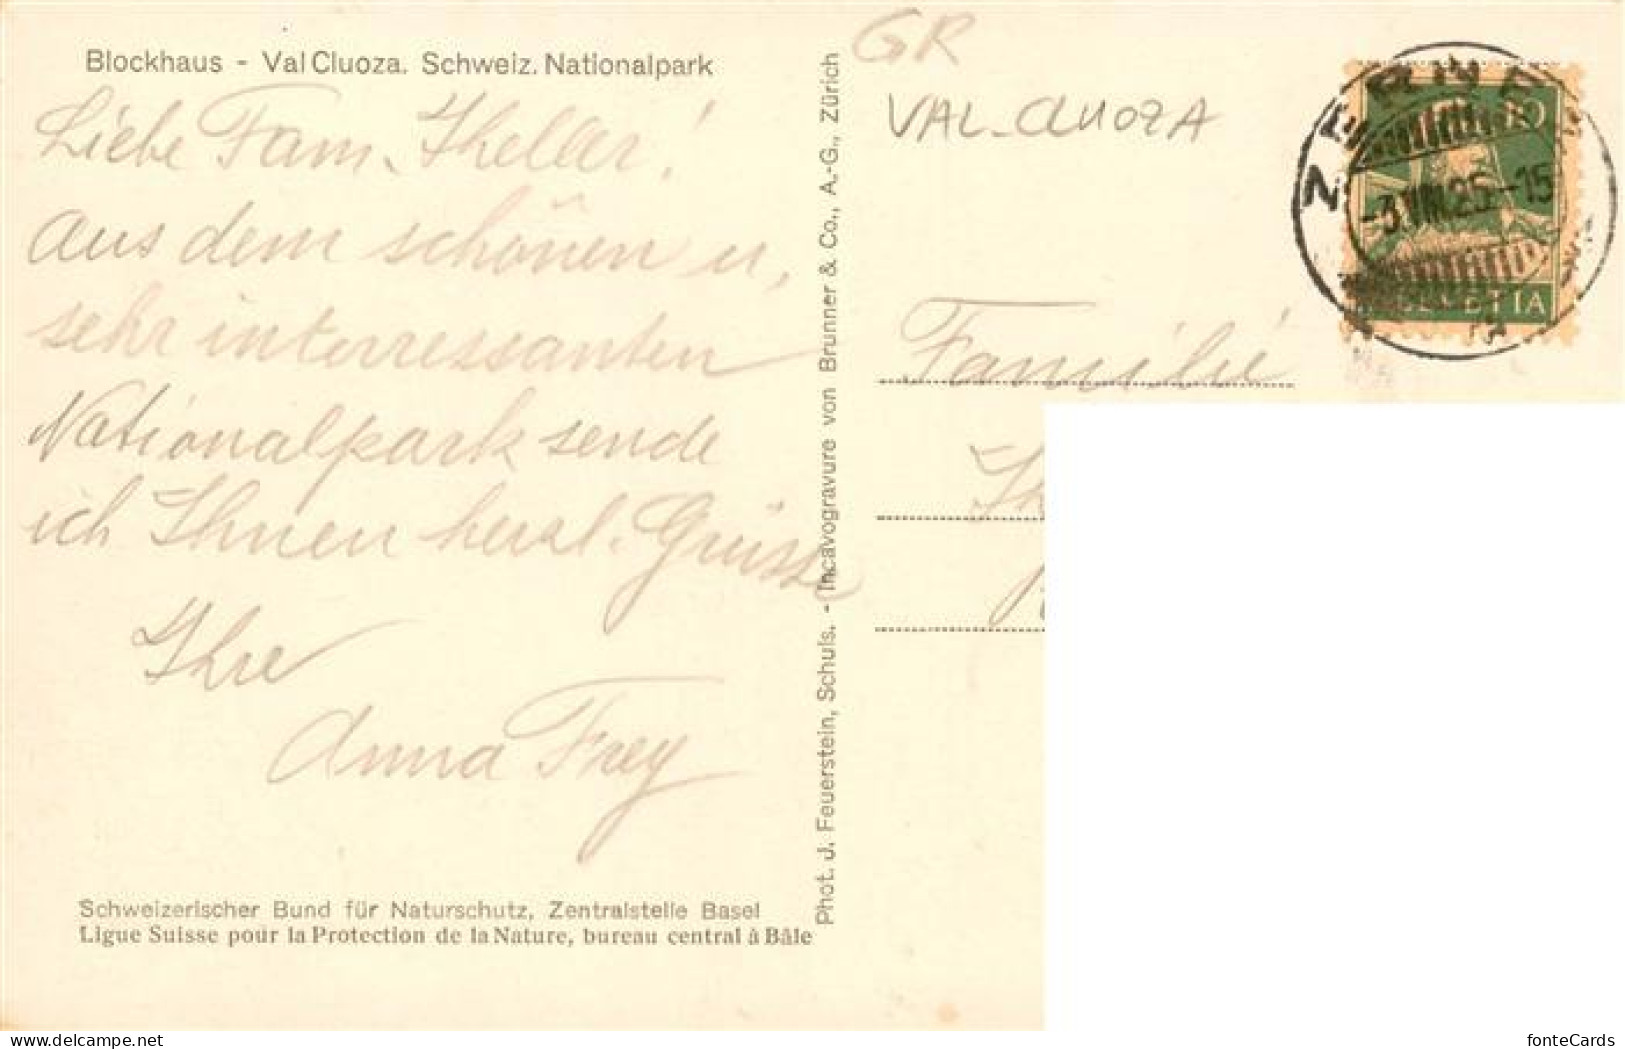 Blockhaus - Val Cluoza. Schweiz. Nationalpark
Liebe Fam. Theller!
Aus dem schönen u,
sehr interressanten
Nationalpark sende
ich Ihnen herzl. Grüsse
Ihre
Anna Frey
Schweizerischer Bund für Naturschutz, Zentralstelle Basel
Ligue Suisse pour la Protection de la Nature, bureau central à Bâle
Phot. J. Feuerstein, Schuls. - Incavogravure von Brunner & Co., A.-G., Zürich
GR
VAL-CLUOZA
ZERNEZ
-3.VIII.25.-15
10
HELVETIA
Familie
Th
delcampe.net
fonteCards